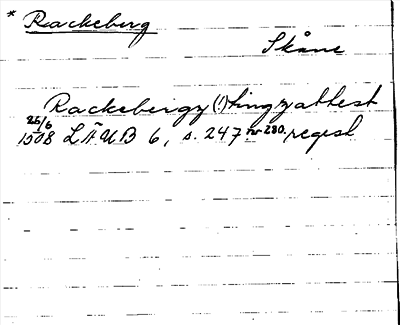 * Rackeberg
Skåne
Rackebergz (!) tingzattest
25/6 1508 LÄUB 6, s. 247 nr 280. regest